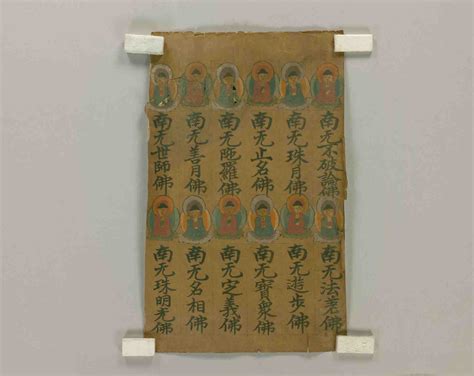 南无不破論佛
南无珠月佛
南无止名佛
南无陁羅佛
南无善月佛
南无世師佛
南无法佛
南无遊步佛
南无寶衆佛
南无定義佛
南无名相佛
南无珠明光佛